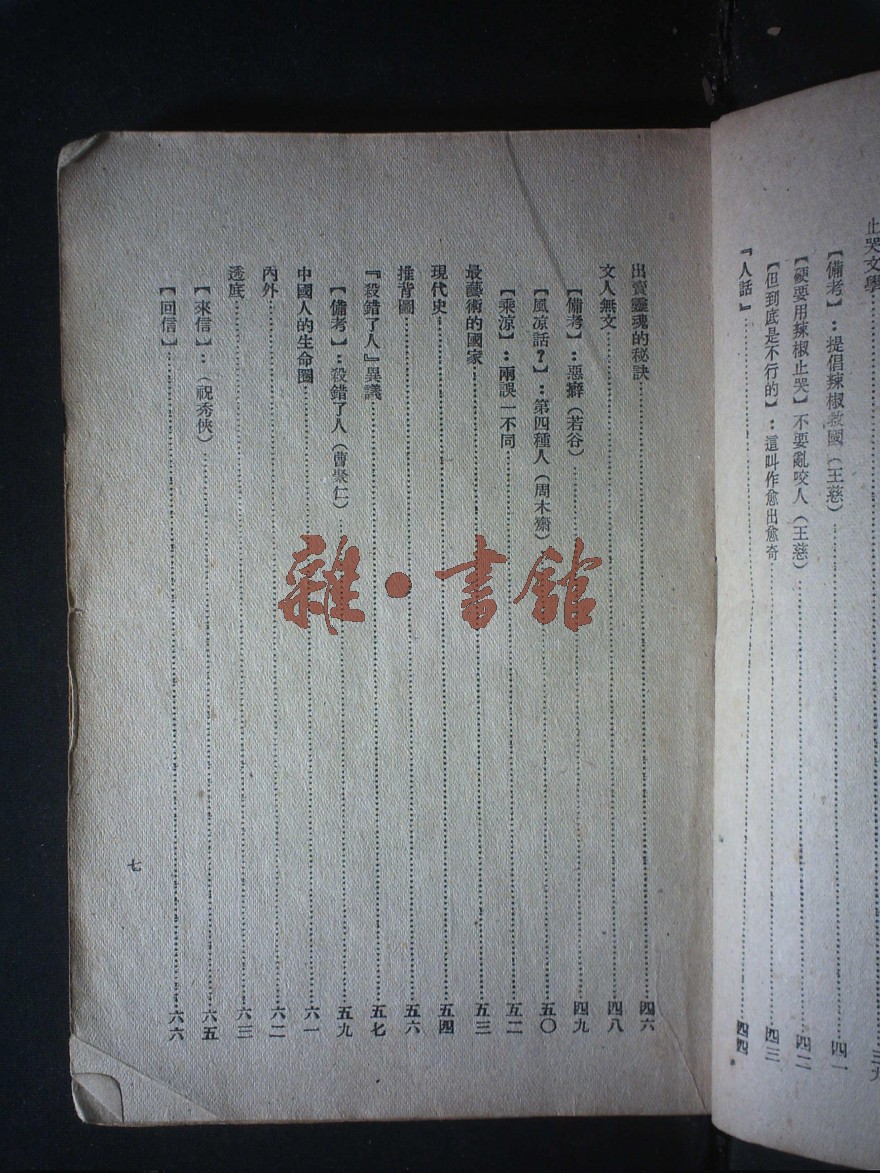 止哭文學……三九
【備考】：提倡辣椒救國（王慈）……四一
【硬要用辣椒止哭】不要亂咬人（王慈）……四二
【但到底是不行的】：這叫作愈出愈奇……四三
『人話』……四四
出賣靈魂的秘訣……四六
文人無文……四八
【備考】：惡癖（若谷）……四九
【風凉話？】：第四種人（周木齋）……五〇
【乘凉】：兩誤一不同……五二
最藝術的國家……五三
現代史……五四
推背圖……五六
『殺錯了人』異議……五七
【備考】：殺錯了人（曹聚仁）……五九
中國人的生命圈……六一
內外……六二
透底……六三
【來信】：（祝秀俠）……六五
【回信】……六六
七
雜·書館